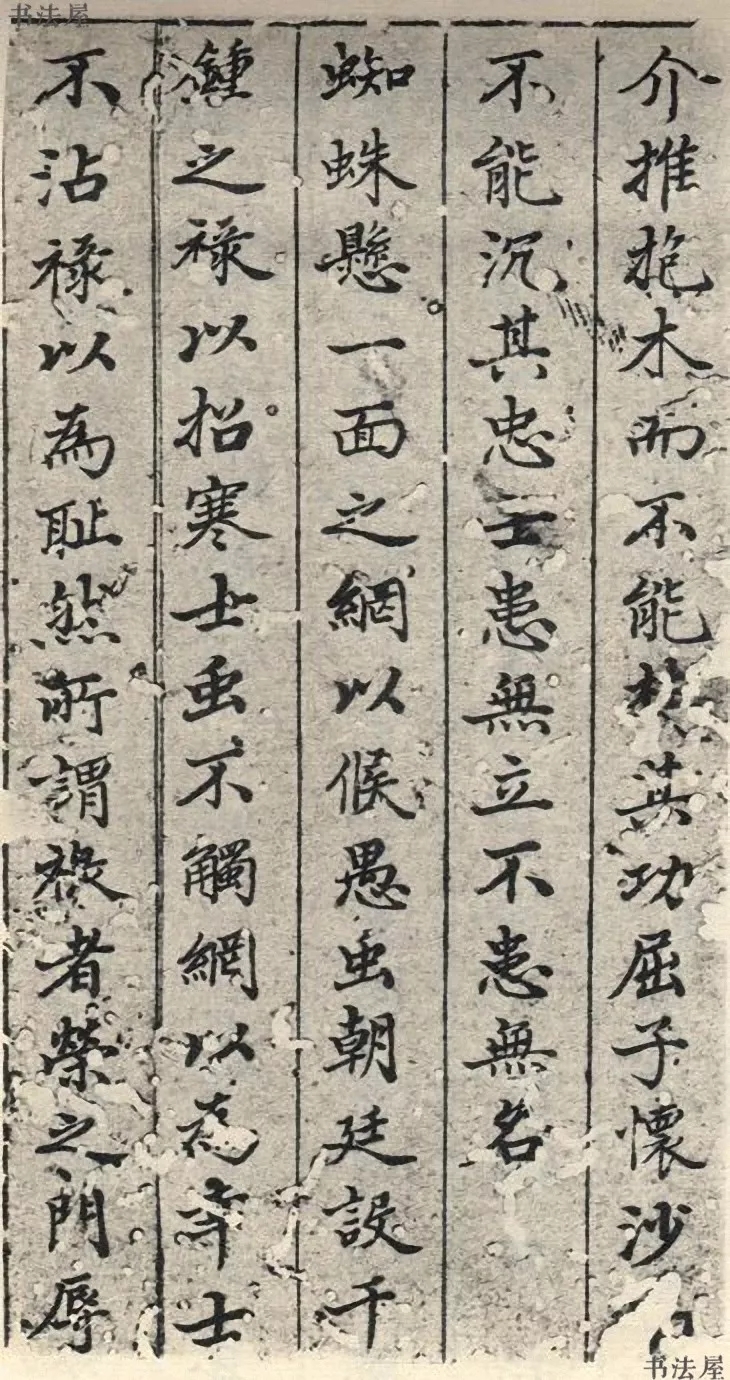 书法屋
介推抱木而不能
其功屈子懷沙
不能沉其忠士患無立不患無名
蜘蛛懸一面之網以候愚虫朝廷設千
鍾之祿以招寒士虫不觸網以為幸士
不沾祿以為恥然所謂祿者榮之門辱
书法屋